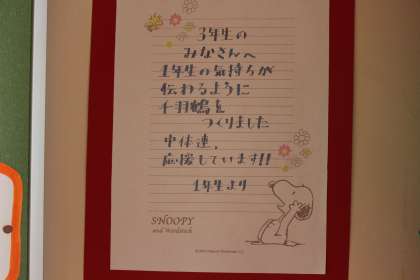 3年生の
みなさんへ
1年生の気持ちが
伝わるように
千羽鶴を
つくりました
中体連、
応援しています!!
1年生より
SNOOPY
and Woodstock